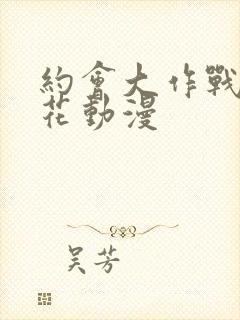 約會大作戰
花動漫
吴芳